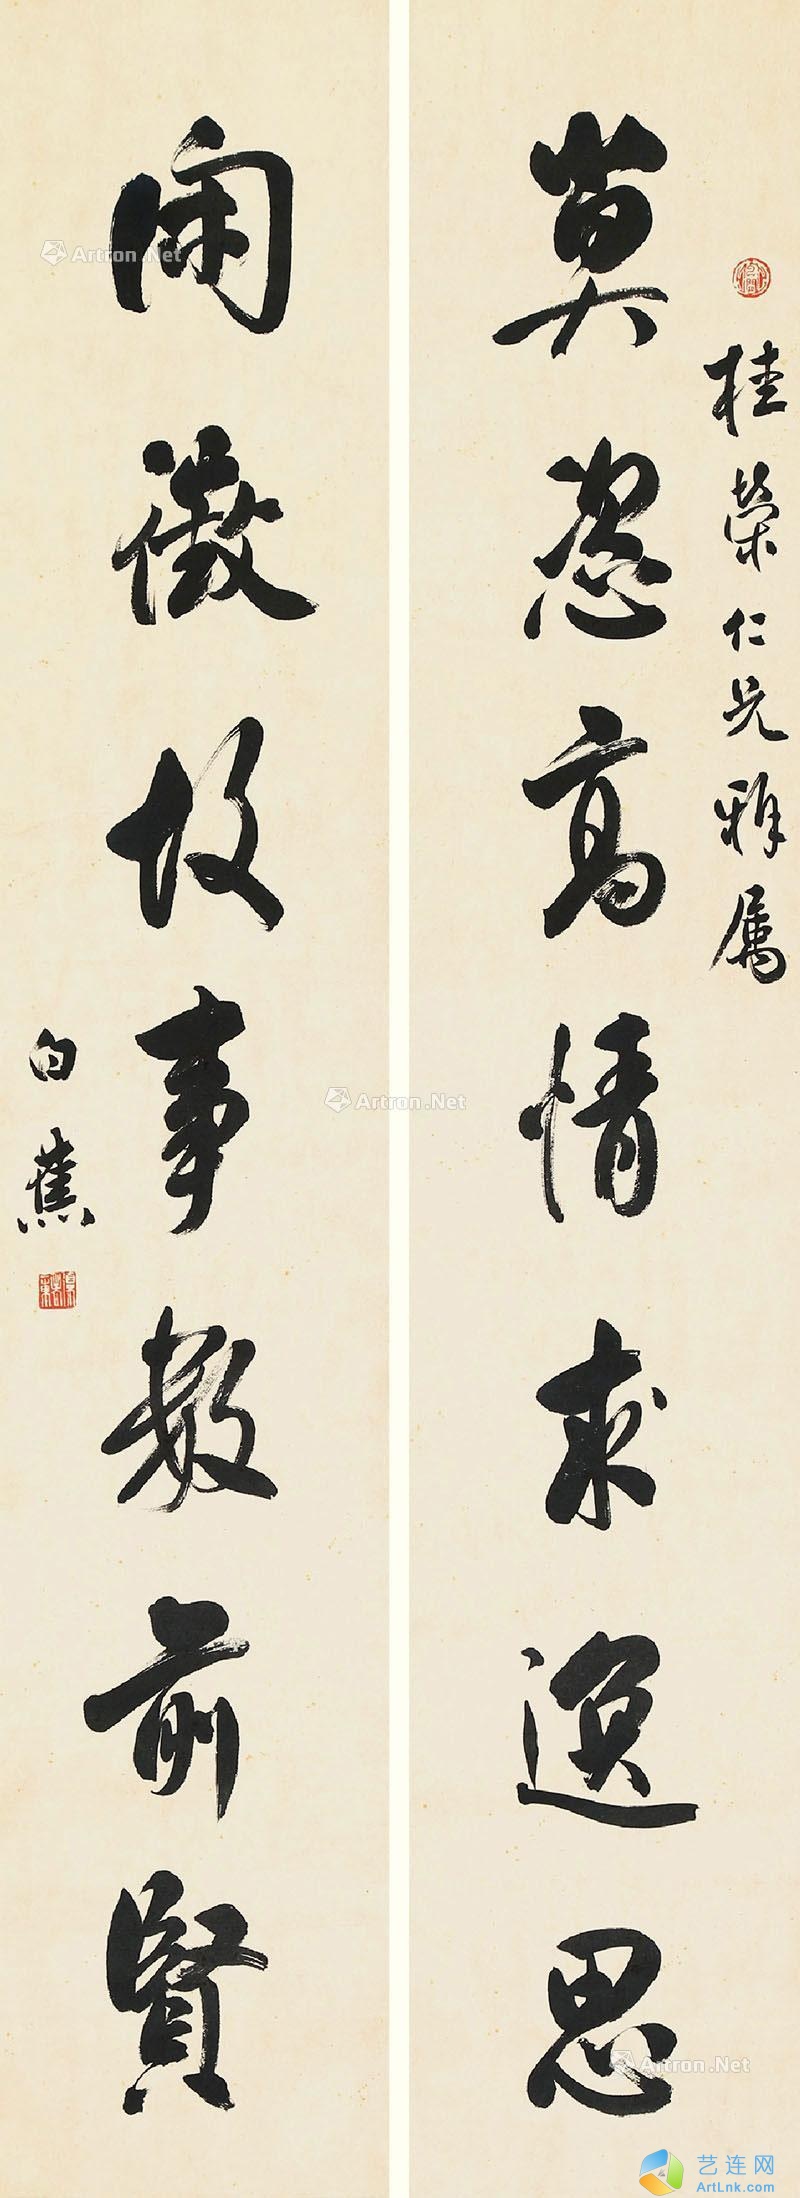 桂榮仁兄雅属
莫恣高情求逸思
閑徵故事數前賢
白蕉
Artron.Net
Artron.Net
Artron.Net
艺连网
ArtLnk.com